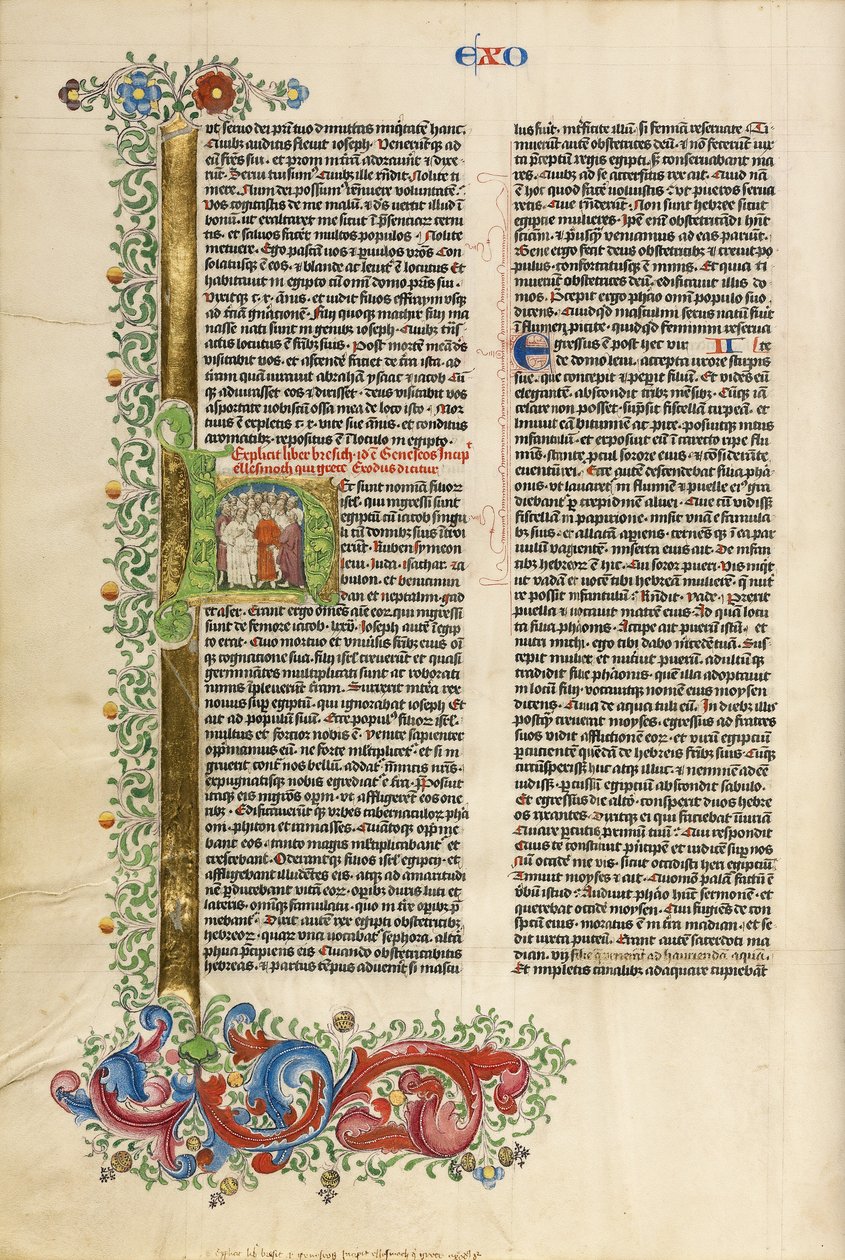 EXO
vt servo dei pr̄i tuo dimittas iniqͥtatē hanc.
Quibꝫ auditis flevit ioseph. Venerūtqꝫ ad
eū fr̄es sui. et proni in tr̄am adorauūt ⁊ dixe-
rūt. Servi tui sumꝰ. Quibꝫ ille rn̄dit. Nolite ti
mere. Num dei possumꝰ rēnuere voluntatē.
Vos cogitastis de me malū. ⁊ dꝰs vertit illud ī
bonū. ut exaltaret me sicut ī p̄senciarꝫ cerni
tis. et saluos facēt multos populos. Nolite
metuere. Ego pascā uos ⁊ ꝑuulos vr̄os Con
solatusqꝫ ē eos. ⁊ blande ac leuit̄ ē locutus Et
habitauit in egipto cū om̄i domo pr̄is sui.
Vixitqꝫ c. x. ānis. et vidit filios effraym vsqꝫ
ad t̄ciā gn̄acionē. Filij quoqꝫ machir filij ma
nasse nati sunt in genibꝫ ioseph. Quibꝫ tn̄sͥ
actis locutus ē fr̄ibꝫ suis. Post mortē meā dꝰs
visitabit vos. et ascēdē faciet de tr̄a ista. ad
terram quā iurauit abrahā ysaac ⁊ iacob Cū
qꝫ adiurasset eos ⁊ dixisset. deus visitabit vos
asportate vobiscū ossa mea de loco isto. Mor
tuus ē expletis c. x. vite sue ānis. et conditus
aromatibꝫ. repositus ē ī loculo in egipto.
Explicit liber bresich. id ē Geneseos Incipͭ
ellesmoch qui grece Exodus dicitur
Et sunt nomīa filiorꝫ
isrl̄. qui ingressi sunt
egiptū cū iacob singu
li cū domibꝫ suis ītroi
erūt. Ruben Symeon
leui. Iuda. isachar. za
bulon. et beniamin
dan et neptalim. gad
et aser. Erant ergo om̄es aīe eorꝫ qui ingressi
sunt de femore iacob. lxxv. Ioseph autē ī egip
to erat. Quo mortuo et vniūsis fr̄ibꝫ eius om̄i
qꝫ cognacione sua. filij isrl̄ creuerūt et quasi
germinātes multiplicati sunt. ac roborati
nimis īpleuerūt tr̄am. Surrexit int̄ea rex
nouus suꝑ egiptū. qui ignorabat ioseph Et
ait ad populū suū. Ecce popul' filiorꝫ isrl̄.
multus et forcior nobis ē. Venite sapienter
opp̄mamus eū. ne forte ml̄tiplicet̄. et si in
gruerit cont̄ nos bellū. addat̄ inīmicis nr̄is.
expugnatisqꝫ nobis egrediat̄ e tr̄a. Preposuit
itaqꝫ eis mgr̄os oꝑm. vt affligerēt eos one
ribꝫ. Edificauerūtqꝫ vrbes tabernaculorꝫ pha
oni. phiton et ramasses. Quātoqꝫ opp̄ime
bant eos. tanto magis ml̄tiplicabant̄ et
crescebant. Oderantqꝫ filios isrl̄ egipcij. et
affligebant illudētes eis. atqꝫ ad amaritudi
nē ꝑducebant vitā eorꝫ. oꝑibꝫ duris luti et
lateris. om̄iqꝫ famulatu. quo in tr̄e oꝑibꝫ p̄
mebant̄. Dixit autē rex egipti obstetricibꝫ
hebreorꝫ. quarꝫ vna vocabat̄ sephora. altā
phua p̄cipiens eis Quando obstetricabitis
hebreas. ⁊ partus tēpus aduenit. si mascu
lus fuit̄. int̄ficite illū. si femīa reseruate Ti-
muerūt autē obstetrices deū. ⁊ nō fecerūt iux
ta p̄ceptū regis egipti. sꝫ conseruabant ma
res. Quibꝫ ad se accersitis rex ait. Quid nā
ē hoc quod facē voluistis. vt pueros serua
retis. Que rn̄derūt. Non sunt hebree sicut
egipcie mulieres. Ip̄e enī obstetricādi hn̄t
sciām. ⁊ p̄usqͣꝫ veniamus ad eas pariūt.
Bene ergo fecit deus obstetricibꝫ ⁊ creuit po
pulus. confortatusqꝫ ē nimis. Et quia ti
muerūt obstetrices deū. edificauit illis do
mos. Precepit ergo phao om̄i populo suo
dicens. Quidqͥd masculini sexus natū fuit̄
ī flumen ꝓicite. quidqͥd feminini reseruate
Egressus ē post hec vir II
de domo leui. accepta uxore stirpis
sue. que concepit ⁊ peꝑit filiū. Et vidēs eū
elegantē. abscondit tribꝫ mēsibꝫ. Cūqꝫ iā
celare non posset. sūpsit fiscellā cirpeā. et
liniuit eā bitumine ac pice. posuitqꝫ intus
infantulū. et exposuit eū ī carecto ripe flu
minis. stante ꝓcul sorore eius. ⁊ cōsiderāte
euentū rei. Ecce autē descendebat filia pha
onis. vt lauaret̄ in flumīe ⁊ puelle eiꝰ gra
diebant̄ ꝑ crepidinē aluei. Que cū vidissꝫ
fiscellā in papirione. misit vnā e famula
bꝫ suis. et allatā aꝑiens. cernēsqꝫ ī ea par
uulū vagientē. miserta eius ait. De infan
tibꝫ hebreorꝫ ē hic. Cui soror pueri. Vis inqͥt
ut vadā et vocē tibi hebreā mulierē. q̄ nutͥ
re possit infantulū. Rn̄dit. Vade. Perrexit
puella ⁊ uocauit matrē eius. Ad quā locu
ta filia phaonis. Accipe ait puerū istū. et
nutri michi. ego tibi dabo m̄cedē tuā. Sus
cepit mulier et nutriuit puerū. adultūqꝫ
tradidit filie phaonis. quē illa adoptauit
in locū filij. vocauitqꝫ nomē eius moysen
dicens. Quia de aqua tuli eū. In diebꝫ illis
postqͣꝫ creuerat moyses. egressus ad fratres
suos vidit afflictionē eorꝫ. et virū egipciū
ꝑcucientē quendā de hebreis fr̄ibꝫ suis. Cūqꝫ
circūspexissꝫ huc atqꝫ illuc. ⁊ neminē adeē
vidissꝫ. ꝑcussū egipciū abscondit sabulo.
Et egressus die altō. conspexit duos hebre
os rixantes. Dixitqꝫ ei qui faciebat iniuriā
Quare ꝑcutis proximū tuū. Qui respondit
Quis te constituit p̄ncipē et iudicē suꝑ nos
Nū occidē me vis. sicut occidisti heri egipciū
Timuit moyses ⁊ ait. Quomō palā factū ē
v̄bū istud. Audiuit phāo hunc sermonē. et
querebat occidē moysen. Qui fugiēs de con
spectu eius. moratus ē in tr̄a madian. et se
dit iuxta puteū. Erant autē sacerdoti ma
dian. vij filie q̄ venerūt ad hauriendā aquā.
Et impletis canalibꝫ adaquare cupiebāt